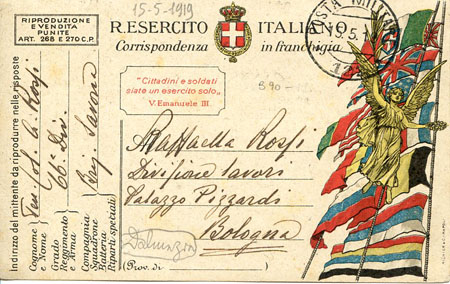 15-5-1919
RIPRODUZIONE
E VENDITA
PUNITE
ART. 268 E 270 C.P.
R. ESERCITO ITALIANO
Corrispondenza in franchigia
POSTA MILITARE
"Cittadini e soldati
siate un esercito solo„
V. EMANUELE III.
B90-
Raffaella Rossi
Divisione lavori
Palazzo Pizzardi
Bologna
Dalmazia
(Prov. di
Indirizzo del mittente da riprodurre nelle risposte
Cognome e Nome
Ten. Col. Rossi
Grado
Reggimento e Arma
66ª Div.
Compagnia
Squadrone
Batteria
Riparti speciali
Brig. Savona